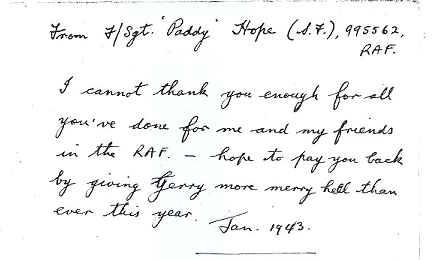 From F/Sgt. 'Paddy' Hope (S.F.), 995562,
RAF.
I cannot thank you enough for all
you've done for me and my friends
in the RAF. — hope to pay you back
by giving Gerry more merry hell than
ever this year. Jan. 1943.